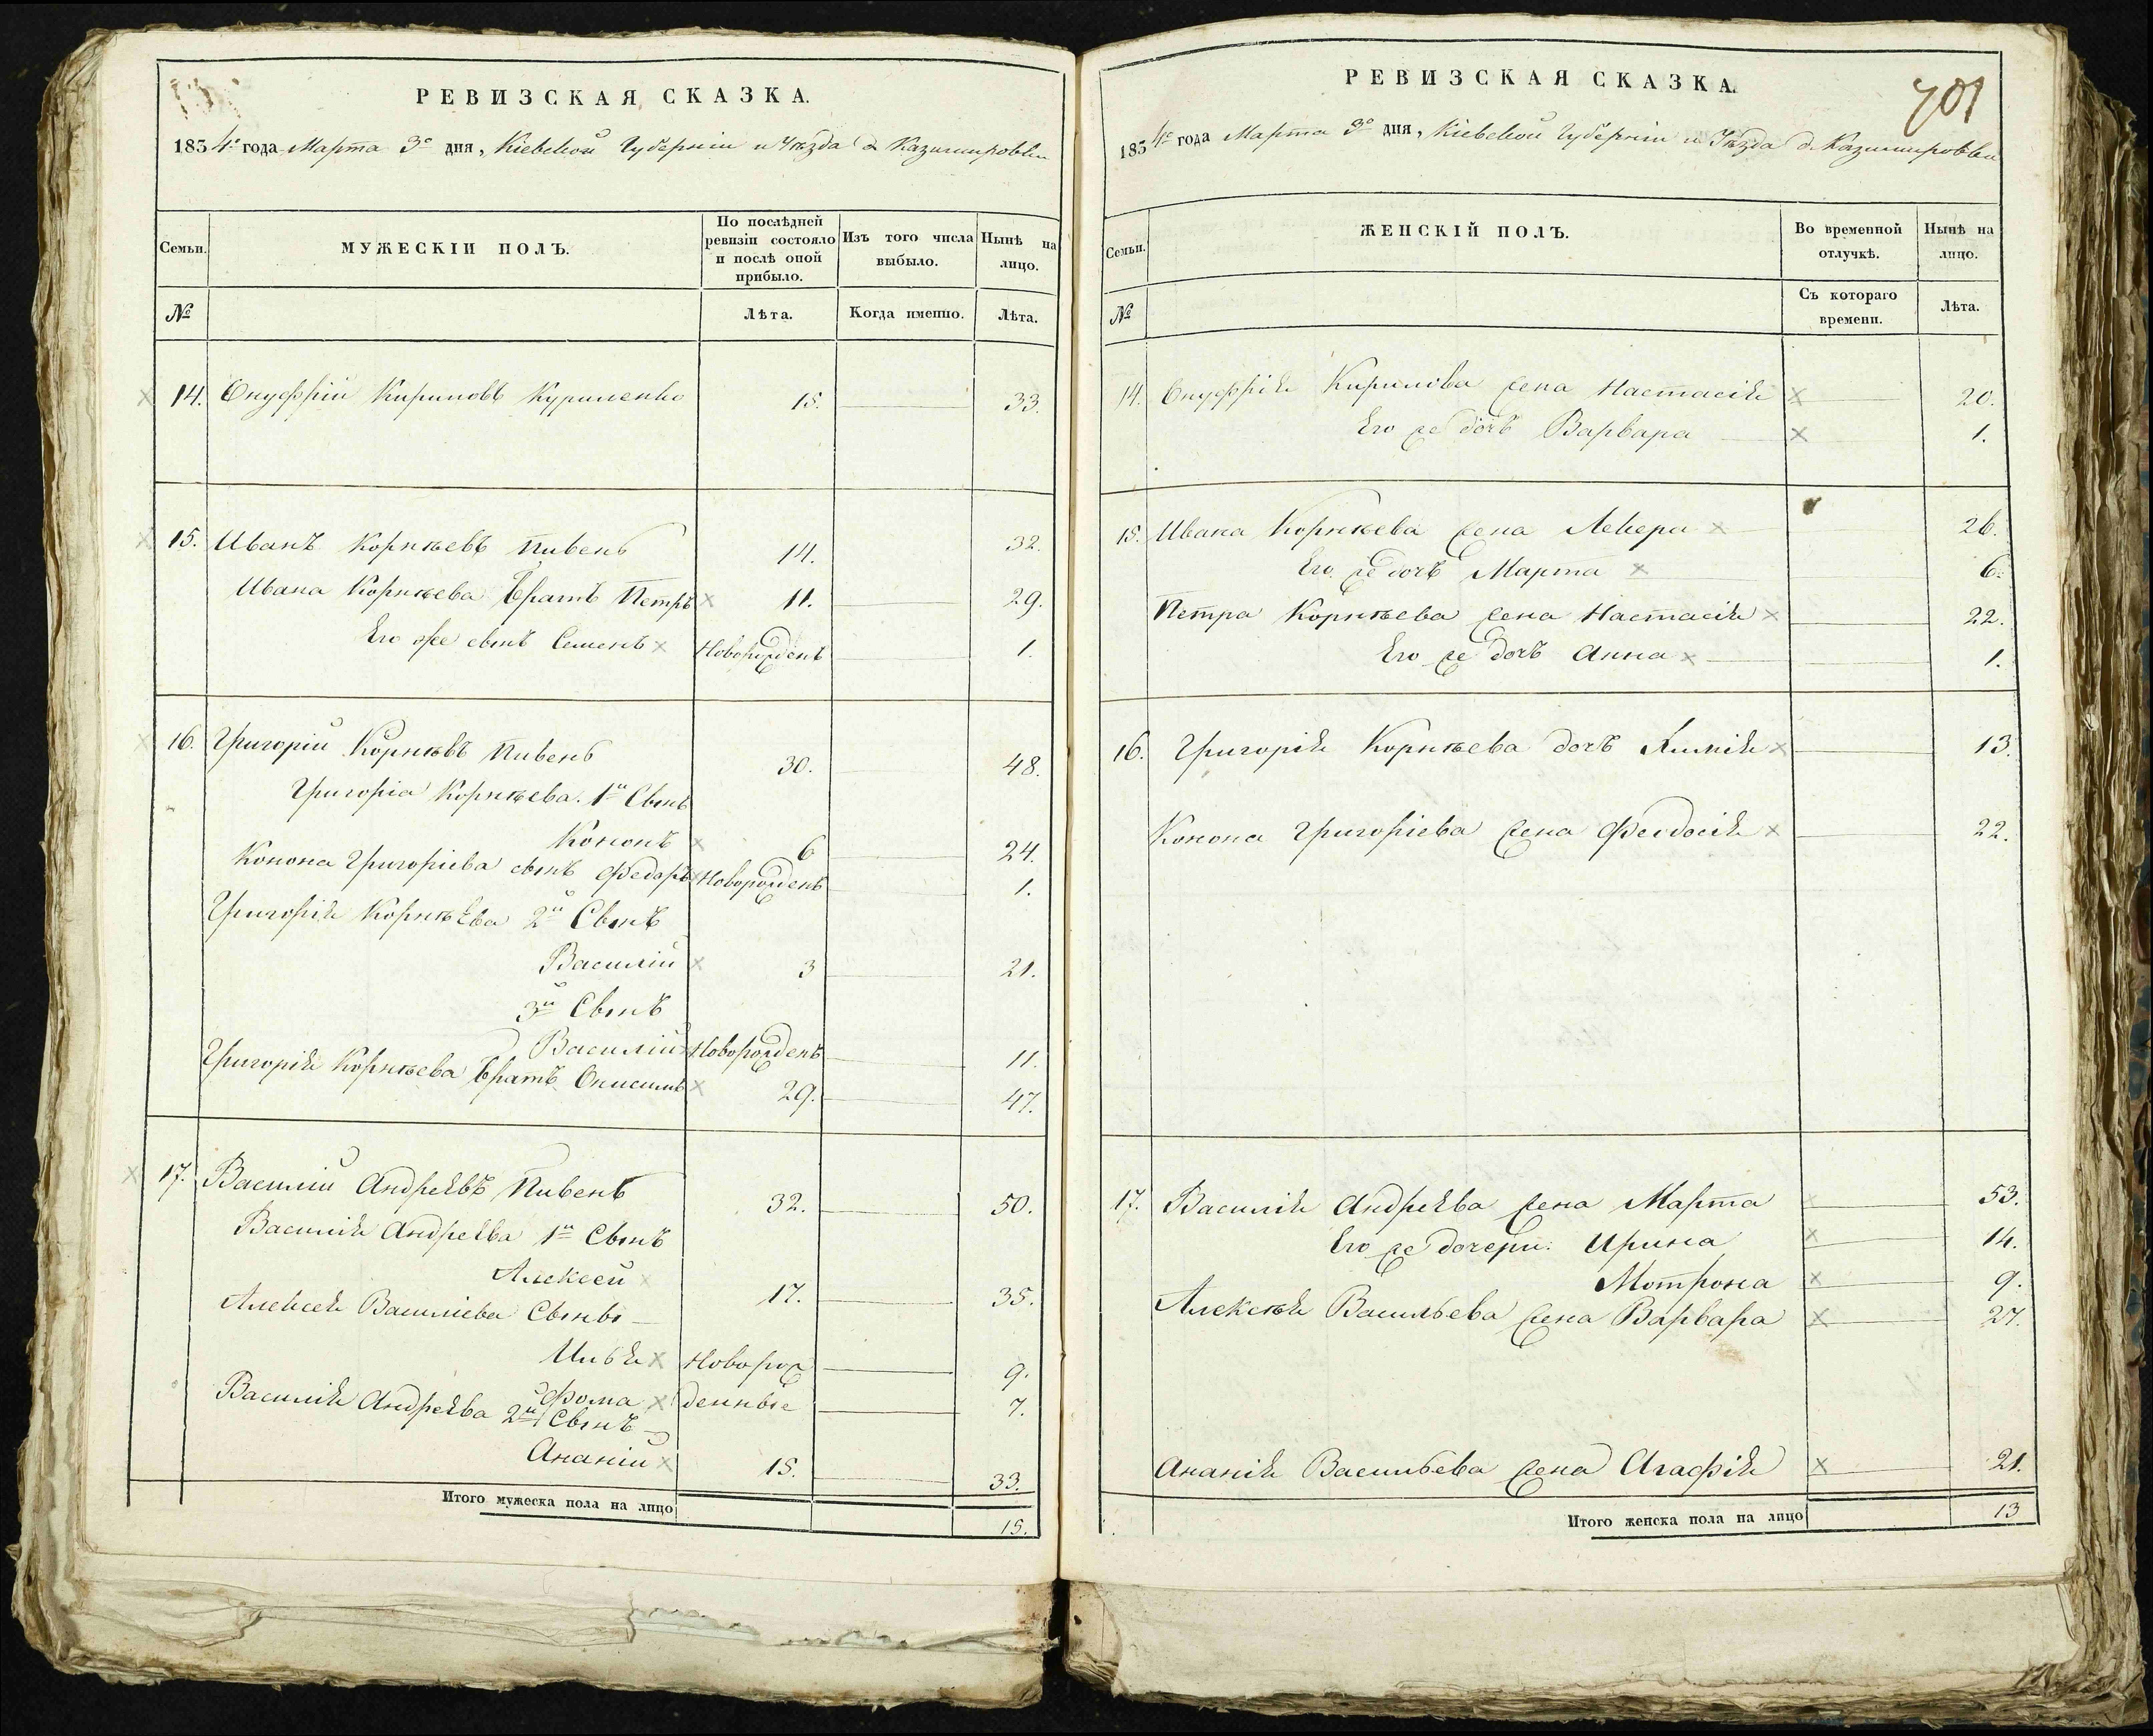 РЕВИЗСКАЯ СКАЗКА.
1834го года Марта 3го дня, Кіевской Губерніи и Уѣзда д Казимировки
Семьи.
МУЖЕСКІЙ ПОЛЪ.
По послѣдней ревизіи состояло и послѣ оной прибыло.
Изъ того числа выбыло.
Нынѣ на лицо.
№
Лѣта.
Когда именно.
Лѣта.
14. Онуфрій Кириловъ Куриленко 15. 33.
15. Иванъ Корнѣевъ Пивень 14. 32.
Ивана Корнѣева братъ Петръ 11. 29.
Его же сынъ Семенъ Новорожденъ 1.
16. Григорій Корнѣвъ Пивень 30. 48.
Григоріа Корнѣева 1й Сынъ
Кононъ 6 24.
Конона Григоріева сынъ Федоръ Новорожденъ 1.
Григорія Корнѣева 2й Сынъ
Василій 3 21.
3й Сынъ
Василій Новорожденъ 11.
Григорія Корнѣева братъ Онисимъ 29. 47.
17. Василій Андреевъ Пивень 32. 50.
Василія Андреева 1й Сынъ
Алексей 17. 35.
Алексея Василіева Сыны
Илья Новорож 9.
Фома денные 7.
Василія Андреева 2й Сынъ
Ананій 15. 33.
Итого мужеска пола на лицо 15.
РЕВИЗСКАЯ СКАЗКА.
701
1834го года Марта 3го дня, Кіевской Губерніи и Уѣзда д. Казимировки
Семьи.
ЖЕНСКІЙ ПОЛЪ.
Во временной отлучкѣ.
Нынѣ на лицо.
№
Съ котораго времени.
Лѣта.
14. Онуфрія Кирилова жена Настасія 20.
Его же дочь Варвара 1.
15. Ивана Корнѣева жена 26.
Его же дочь Марта 6.
Петра Корнѣева жена Настасія 22.
Его же дочь Анна 1.
16. Григорія Корнѣева дочь 13.
Конона Григоріева жена Феодосія 22.
17. Василія Андреева жена Марта 53.
Его же дочери: Ирина 14.
Мотрона 9.
Алексѣя Васильева жена Варвара 27.
Ананія Васильева жена Агафія 21.
Итого женска пола на лицо 13